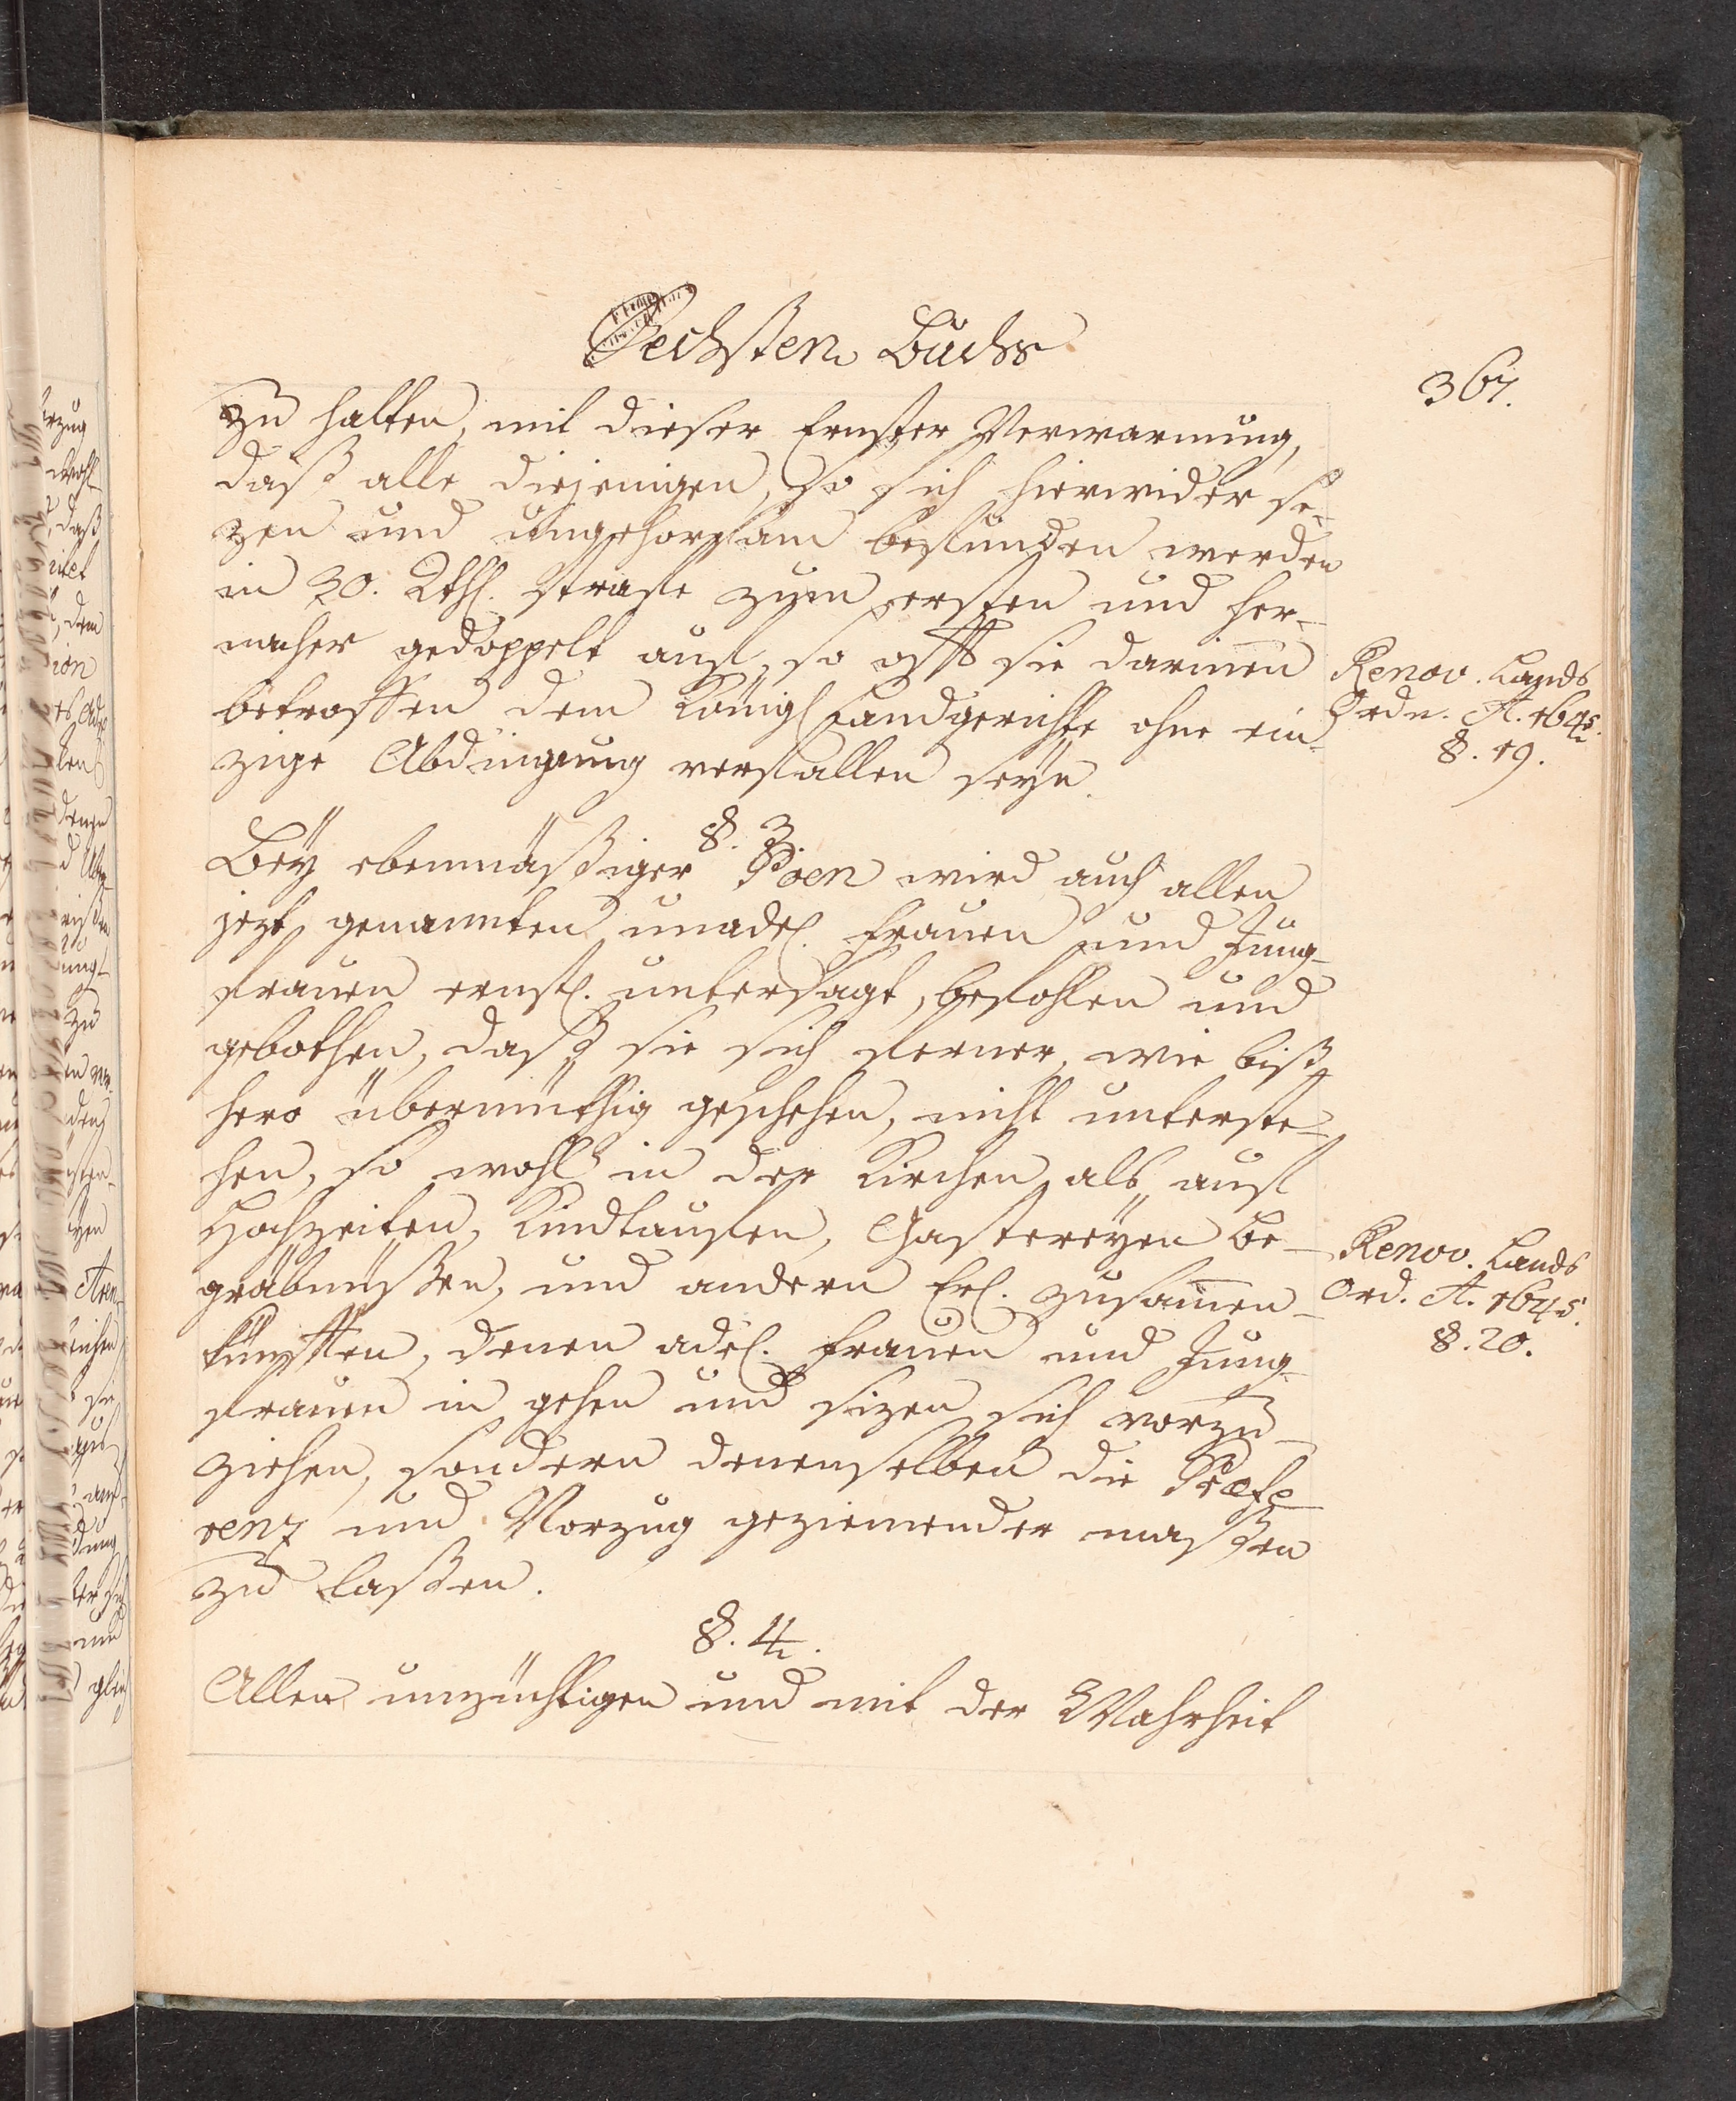 Sechsten Buchs
367.
zu halten, mit dieser Ernster Verwarnung,
daß alle diejenigen, so sich hierwider se-
zen und ungehorsam befunden werden
in 30. Rthl. Strafe zum ersten und her-
nacher gedoppelt auf, so offt sie darinen
betroffen dem Königl Landgerichte ohne ein-
zige Abdingung verfallen seyn.
Renov. Lands
Ordn. A. 1645.
§. 19.
§. 3
Bey ebenmäßiger Poen wird auch allen
jezt genannten unadel. Frauen und Jung-
frauen ernstl. untersagt, befohlen und
gebothen, daß sie sich ferner, wie biß-
hero übermüthig geschehen, nicht unterste-
hen, so wohl in der Kirchen als auf
Hochzeiten, Kindtaufen, Gastereyen Be-
gräbnüßen, und andern Erl. zusamen-
künfften, denen adel. Frauen und Jung-
frauen in gehen und sizen sich vorzu-
ziehen, sondern denenselben die Præfe-
renz und Vorzug geziemender maßen
zu laßen.
Renov. Lands
Ord. A. 1645.
§. 20.
§. 4.
Allen unzüchtigen und mit der Wahrheit